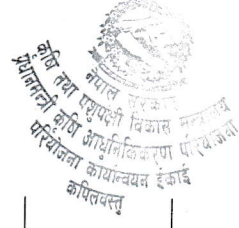 नेपाल सरकार
कृषि तथा पशुपंक्षी विकास मन्त्रालय
प्रधानमन्त्री कृषि आधुनिकिकरण परियोजना
परियोजना कार्यान्वयन ईकाई
कपिलवस्तु